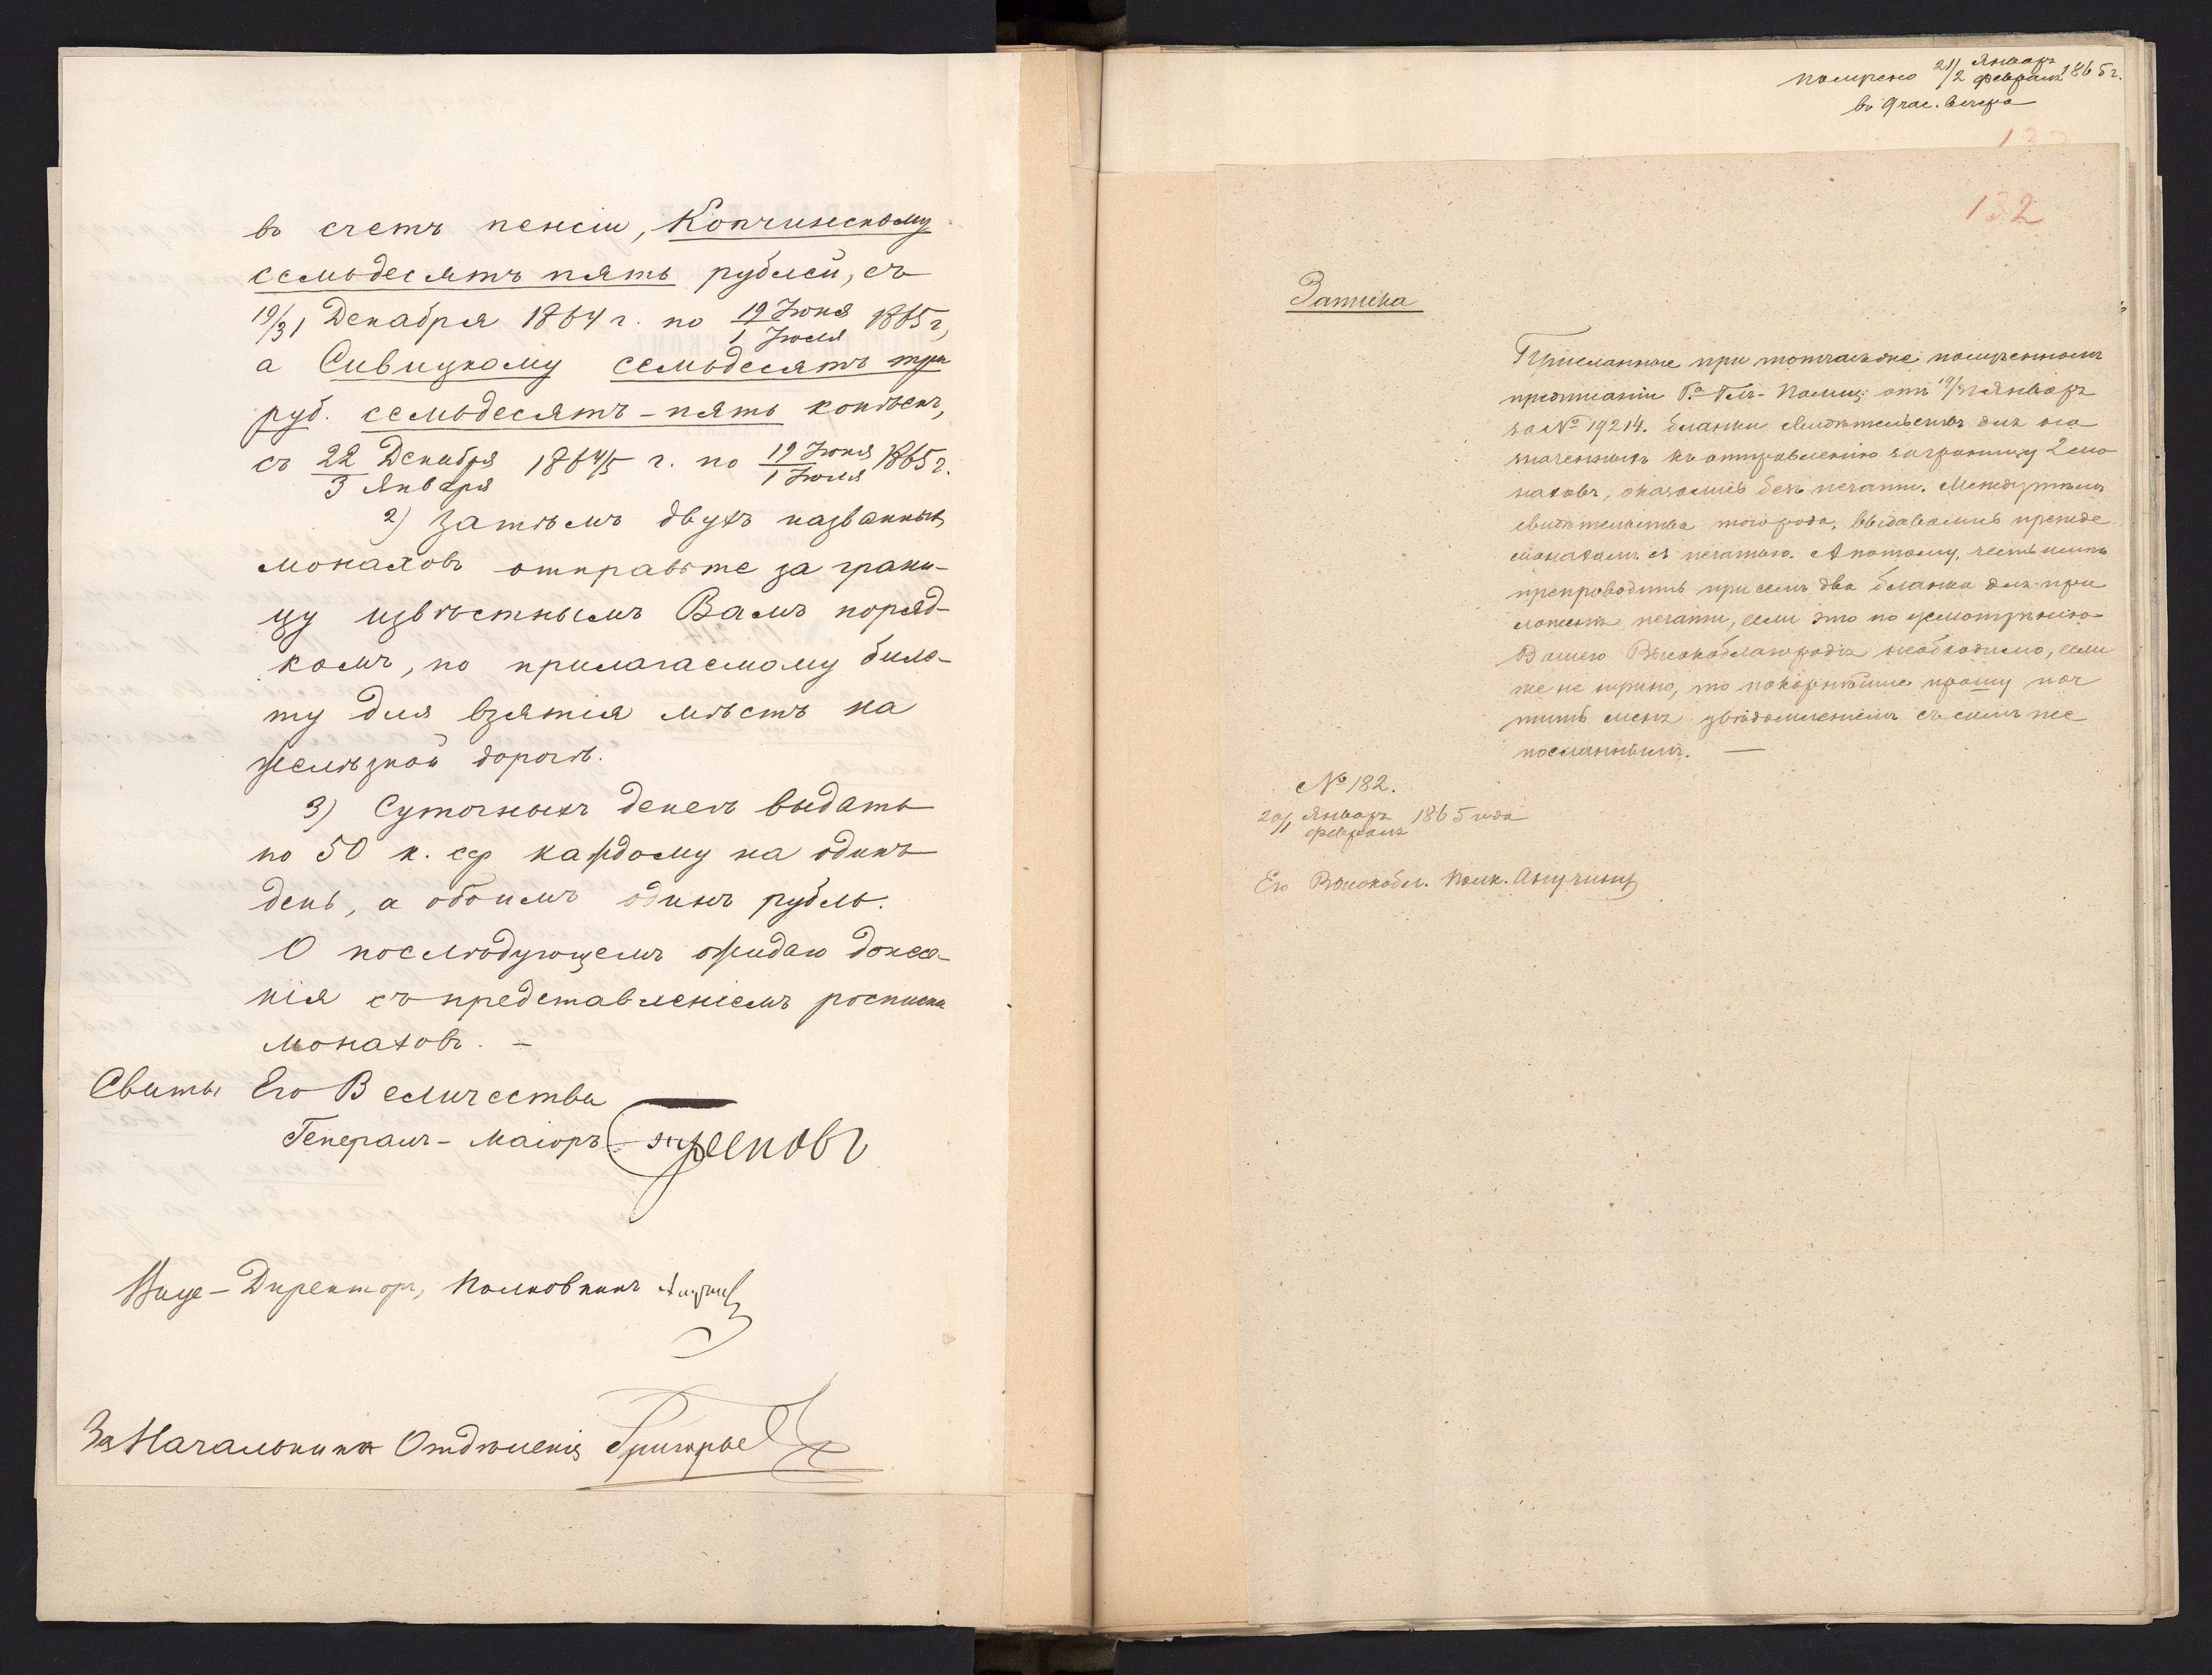 въ счетъ пенсіи, Копчинскому
семьдесятъ пять рублей, съ
19/31 Декабря 1864 г. по 19 Іюня/1 Іюля 1865 г,
а Сивицкому семьдесятъ три
руб. семьдесятъ-пять копѣекъ,
съ 22 Декабря/3 Января 1864/5 г. по 19 Іюня/1 Іюля 1865 г.
2) Затѣмъ двухъ названныхъ
монаховъ отправьте за грани-
цу извѣстнымъ Вамъ поряд-
комъ, по прилагаемому биле-
ту для взятія мѣстъ на
желѣзной дорогѣ.
3) Суточныхъ денегъ выдать
по 50 к. сер каждому на одинъ
день, а обоимъ одинъ рубль.
О послѣдующемъ ожидаю донесе-
нія съ представленіемъ росписки
монаховъ. —
Свиты Его Величества
Генералъ-Маіоръ Треповъ
Вице-Директоръ, Полковникъ Анучинъ
За Начальника Отдѣленія Григорьев
получено 21/2 Января/Февраля 1865 г.
въ 9 час. вечера
132
Записка
Присланные при тотчасъ же полученномъ
предписаніи Га Гел-Полиц: отъ 19/31 Января
за № 19214. бланки свидѣтельствъ для на
значенныхъ къ отправленію заграницу 2 мо
наховъ, оказались безъ печати. Междутѣмъ
свидѣтельства того рода, выдавались прежде
монахамъ съ печатью. А потому, честь имѣю
препроводить при семъ два бланка для при
ложенія печати, если это по усмотрѣнію
Вашего Высокоблагородія необходимо, если
же не нужно, то покорнѣйше прошу поч
тить меня увѣдомленіемъ съ симъ же
посланнымъ. —
№ 182.
20/1 Января/Февраля 1865 года
Его Высокобл. Полк. Анучину